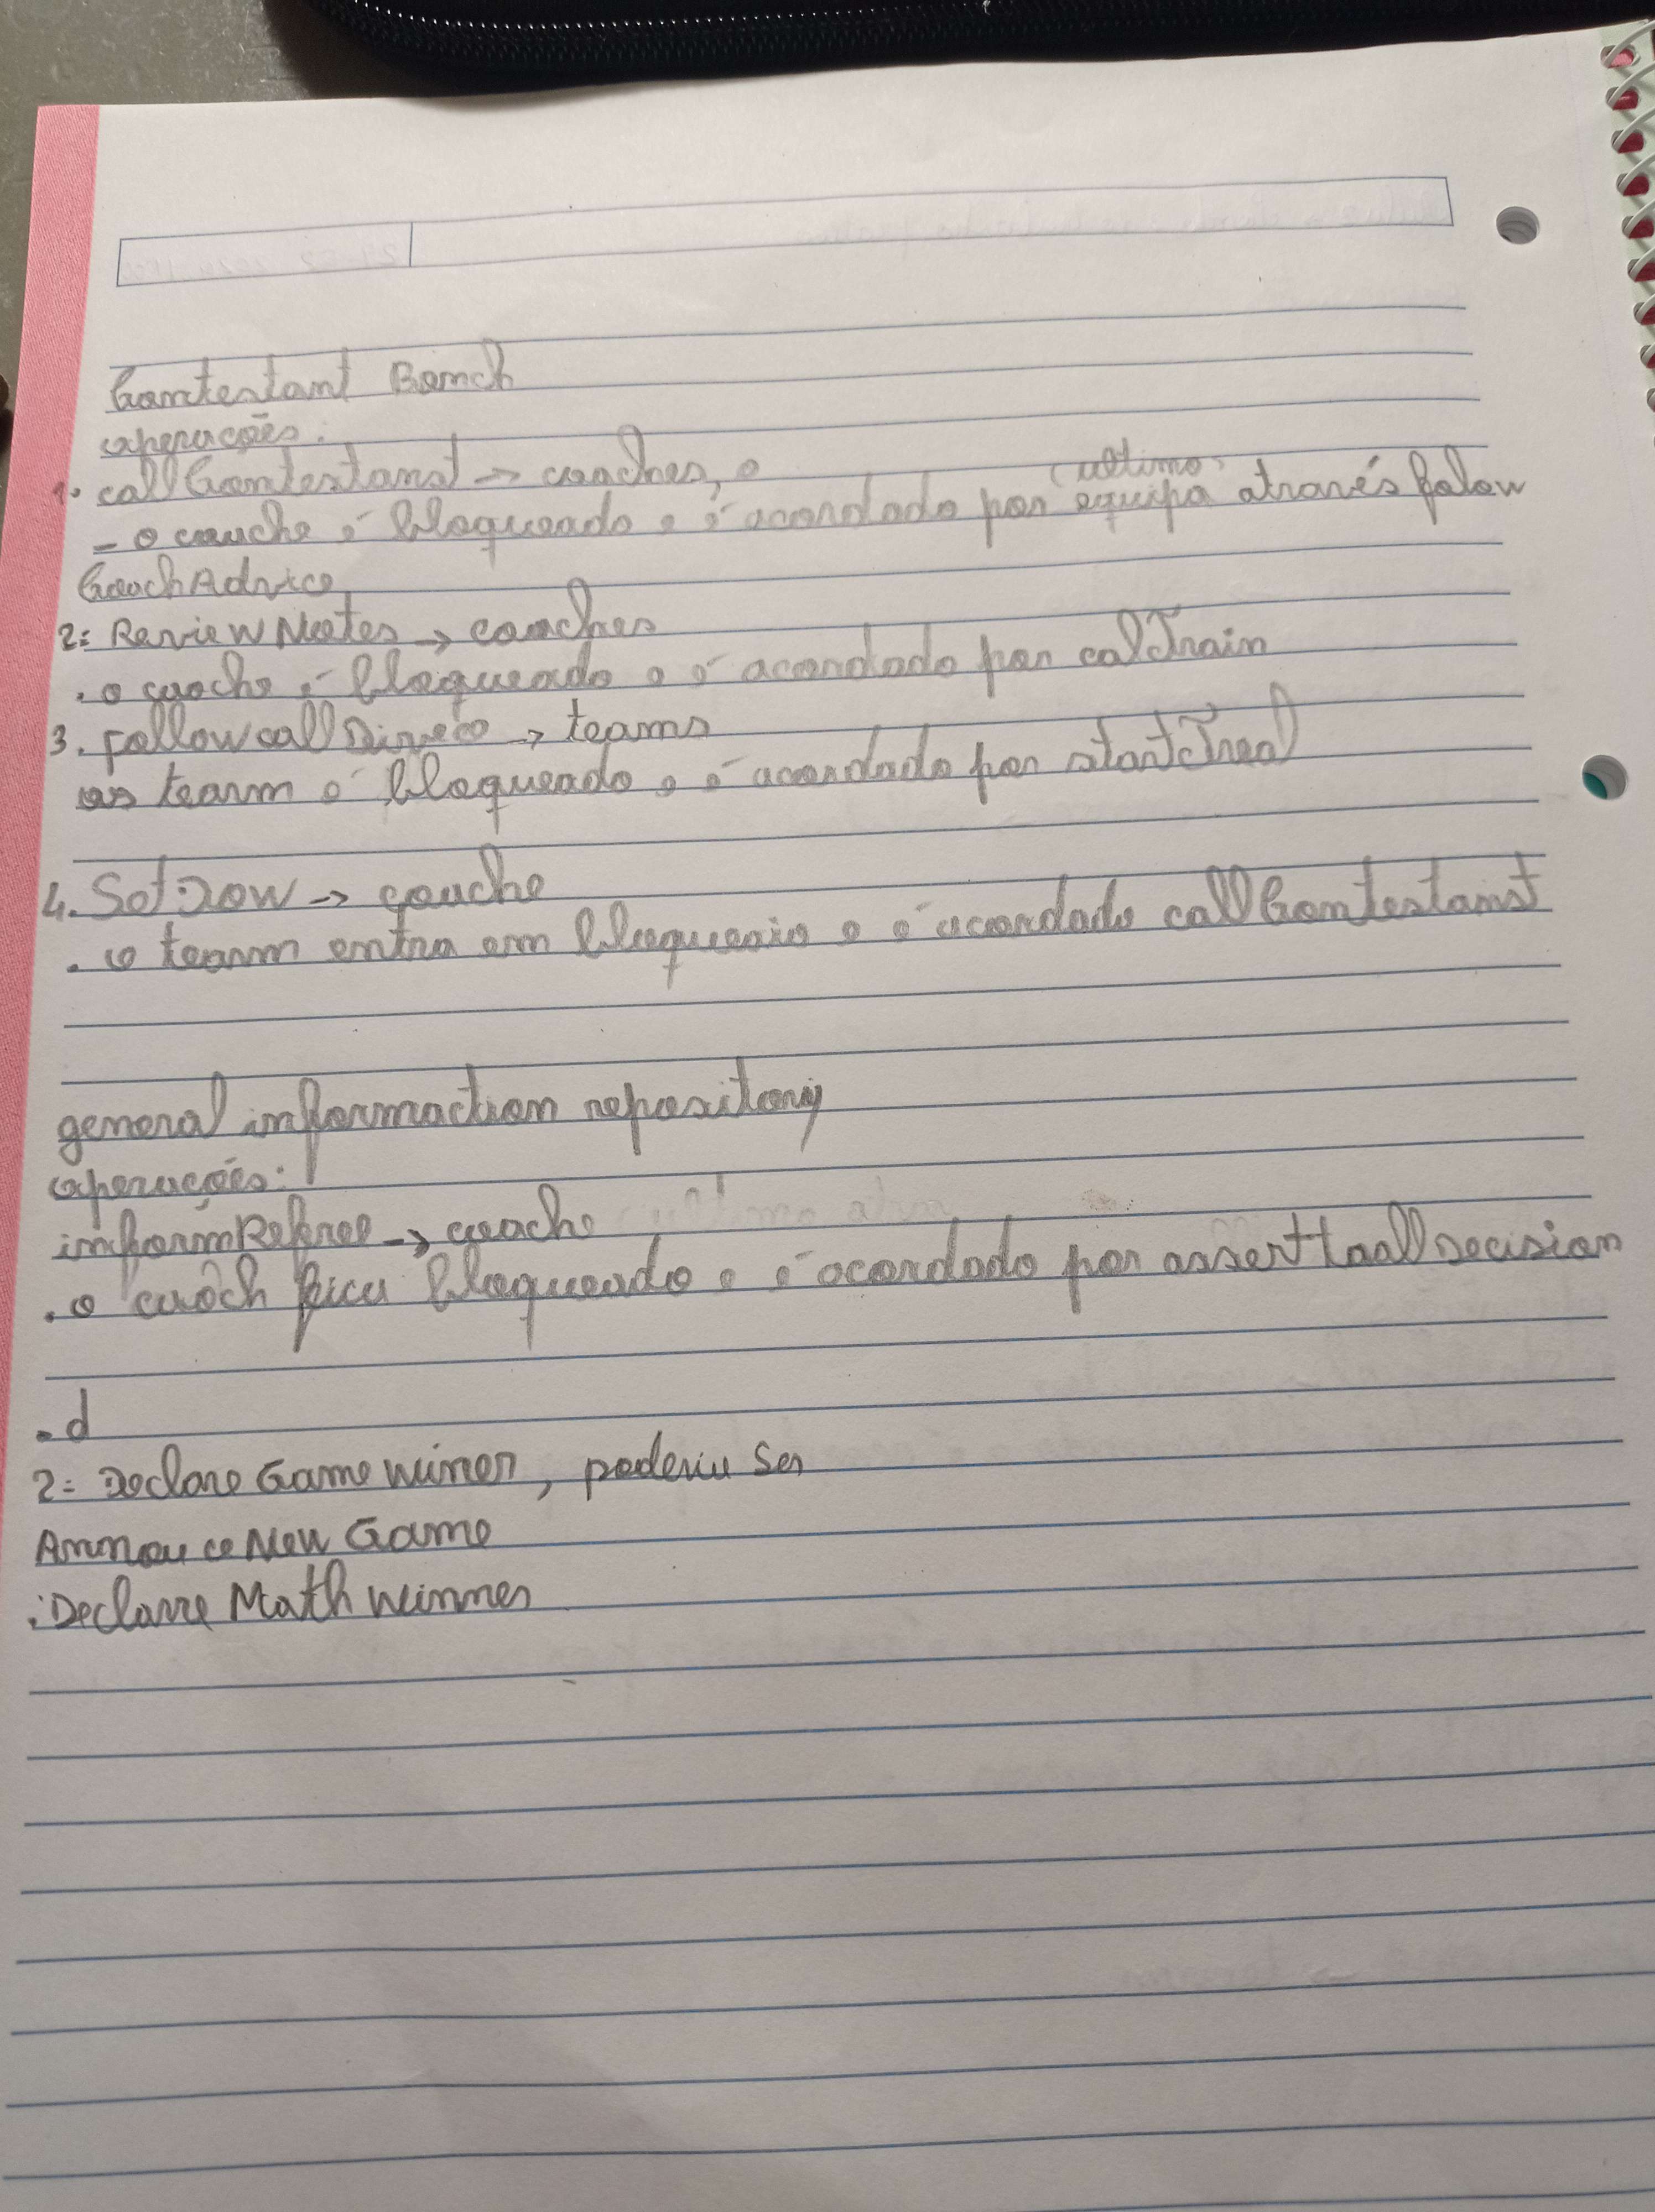 Contestant Bench
operações:
1. callContestanst → coaches, o
(ultimo)
- o couche é bloqueado e é acordado por equipa através folow
CoachAdvice
2: ReviewNotes → coaches
. o coache é bloqueado e é acordado por calTrain
3. followcall → teams
os team é bloqueado e é acordado por startTreal
4. Set → couche
. o team entra em bloqueaio e é acordado callContestanst
general informaction repository
operações:
informReferee → coache
. o coach fica bloqueado e é acordado por assert
. d
2: Declare Game winer, poderia ser
Annouce New Game
: Declare Math winner